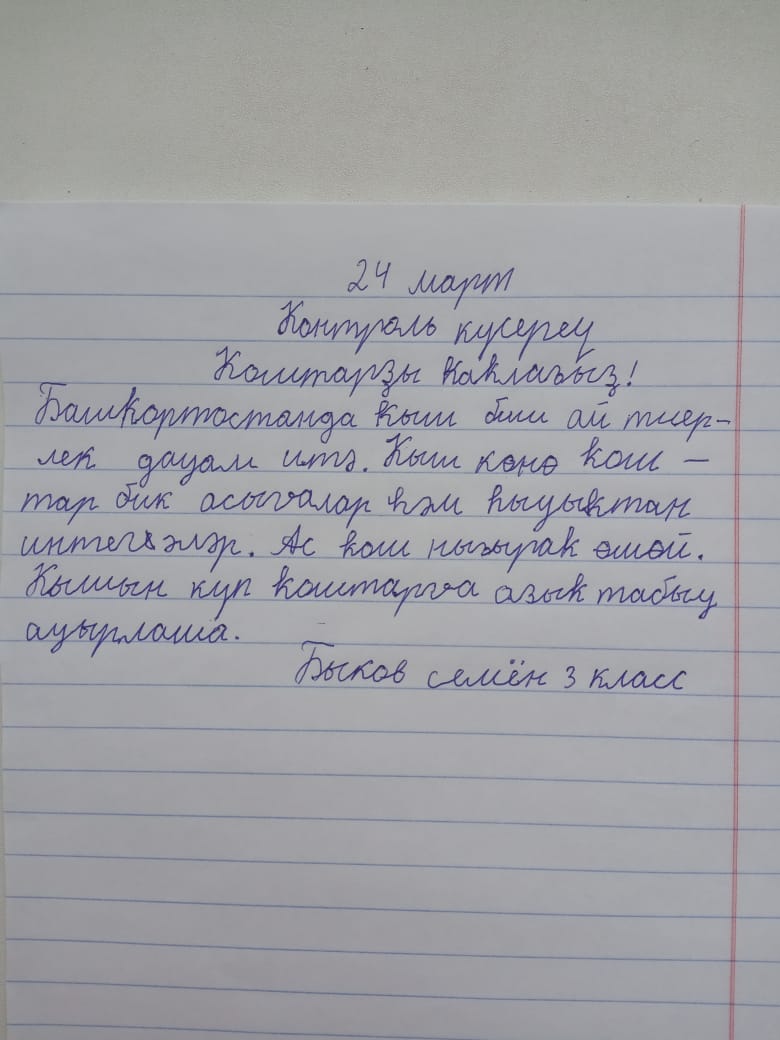 24 март
Контроль күсереү
Ҡоштарҙы һаҡлағыҙ!
Башҡортостанда ҡыш биш ай тиер-
лек дауам итә. Ҡыш көнө ҡош -
тар бик асығалар һәм һыуыҡтан
интегәләр. Ас ҡош нығыраҡ өшөй.
Ҡышын күп ҡоштарға аҙыҡ табыу
ауырлаша.
Быков семён 3 класс